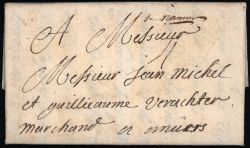 de namur
A Messieur
Messieur jean michel
et guillieaume verachter
marchand a anvers